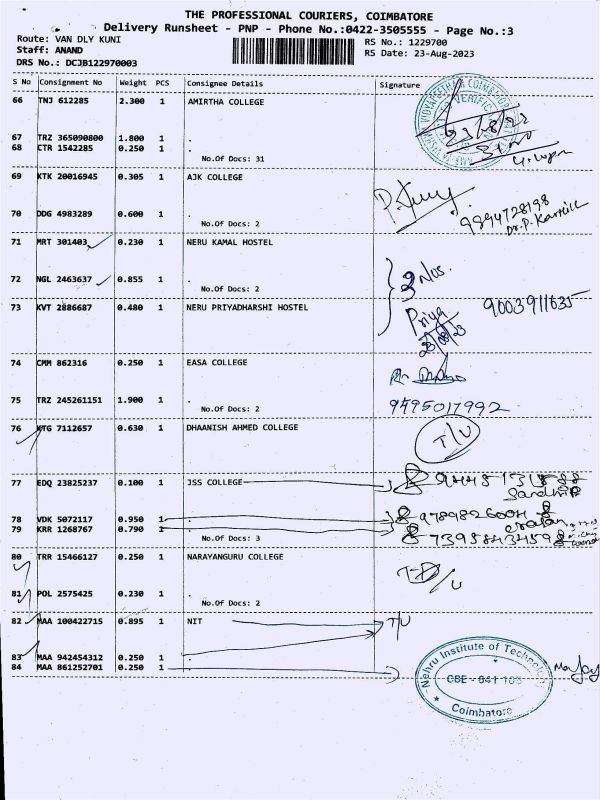 THE PROFESSIONAL COURIERS, COIMBATORE
Delivery Runsheet - PNP - Phone No.:0422-3505555 - Page No.:3
Route: VAN DLY KUNI RS No.: 1229700
Staff: ANAND RS Date: 23-Aug-2023
DRS No.: DCJB122970003
S No Consignment No Weight PCS Consignee Details Signature
66 TNJ 612285 2.300 1 AMIRTHA COLLEGE
23/8/23
67 TRZ 365090800 1.800 1 .
68 CTR 1542285 0.250 1 .
No.Of Docs: 31
69 KTK 20016945 0.305 1 AJK COLLEGE
9894728198
Dr.P. Karthik
70 DDG 4983289 0.600 1 .
No.Of Docs: 2
71 MRT 301403 0.230 1 NERU KAMAL HOSTEL
72 NGL 2463637 0.855 1 .
No.Of Docs: 2
3 Nos.
73 KVT 2886687 0.480 1 NERU PRIYADHARSHI HOSTEL 9003911635
Priya
23/08/23
74 CMM 862316 0.250 1 EASA COLLEGE
75 TRZ 245261151 1.900 1 .
No.Of Docs: 2
9495017992
76 KTG 7112657 0.630 1 DHAANISH AHMED COLLEGE T/U
77 EDQ 23825237 0.100 1 JSS COLLEGE
78 VDK 5072117 0.950 1 .
79 KRR 1268767 0.790 1 .
No.Of Docs: 3 7395843459
80 TRR 15466127 0.250 1 NARAYANGURU COLLEGE
81 POL 2575425 0.230 1 .
No.Of Docs: 2
82 MAA 100422715 0.895 1 NIT T/U
83 MAA 942454312 0.250 1 .
84 MAA 861252701 0.250 1 .
Nehru Institute of Technology
CBE - 641 105
Coimbatore